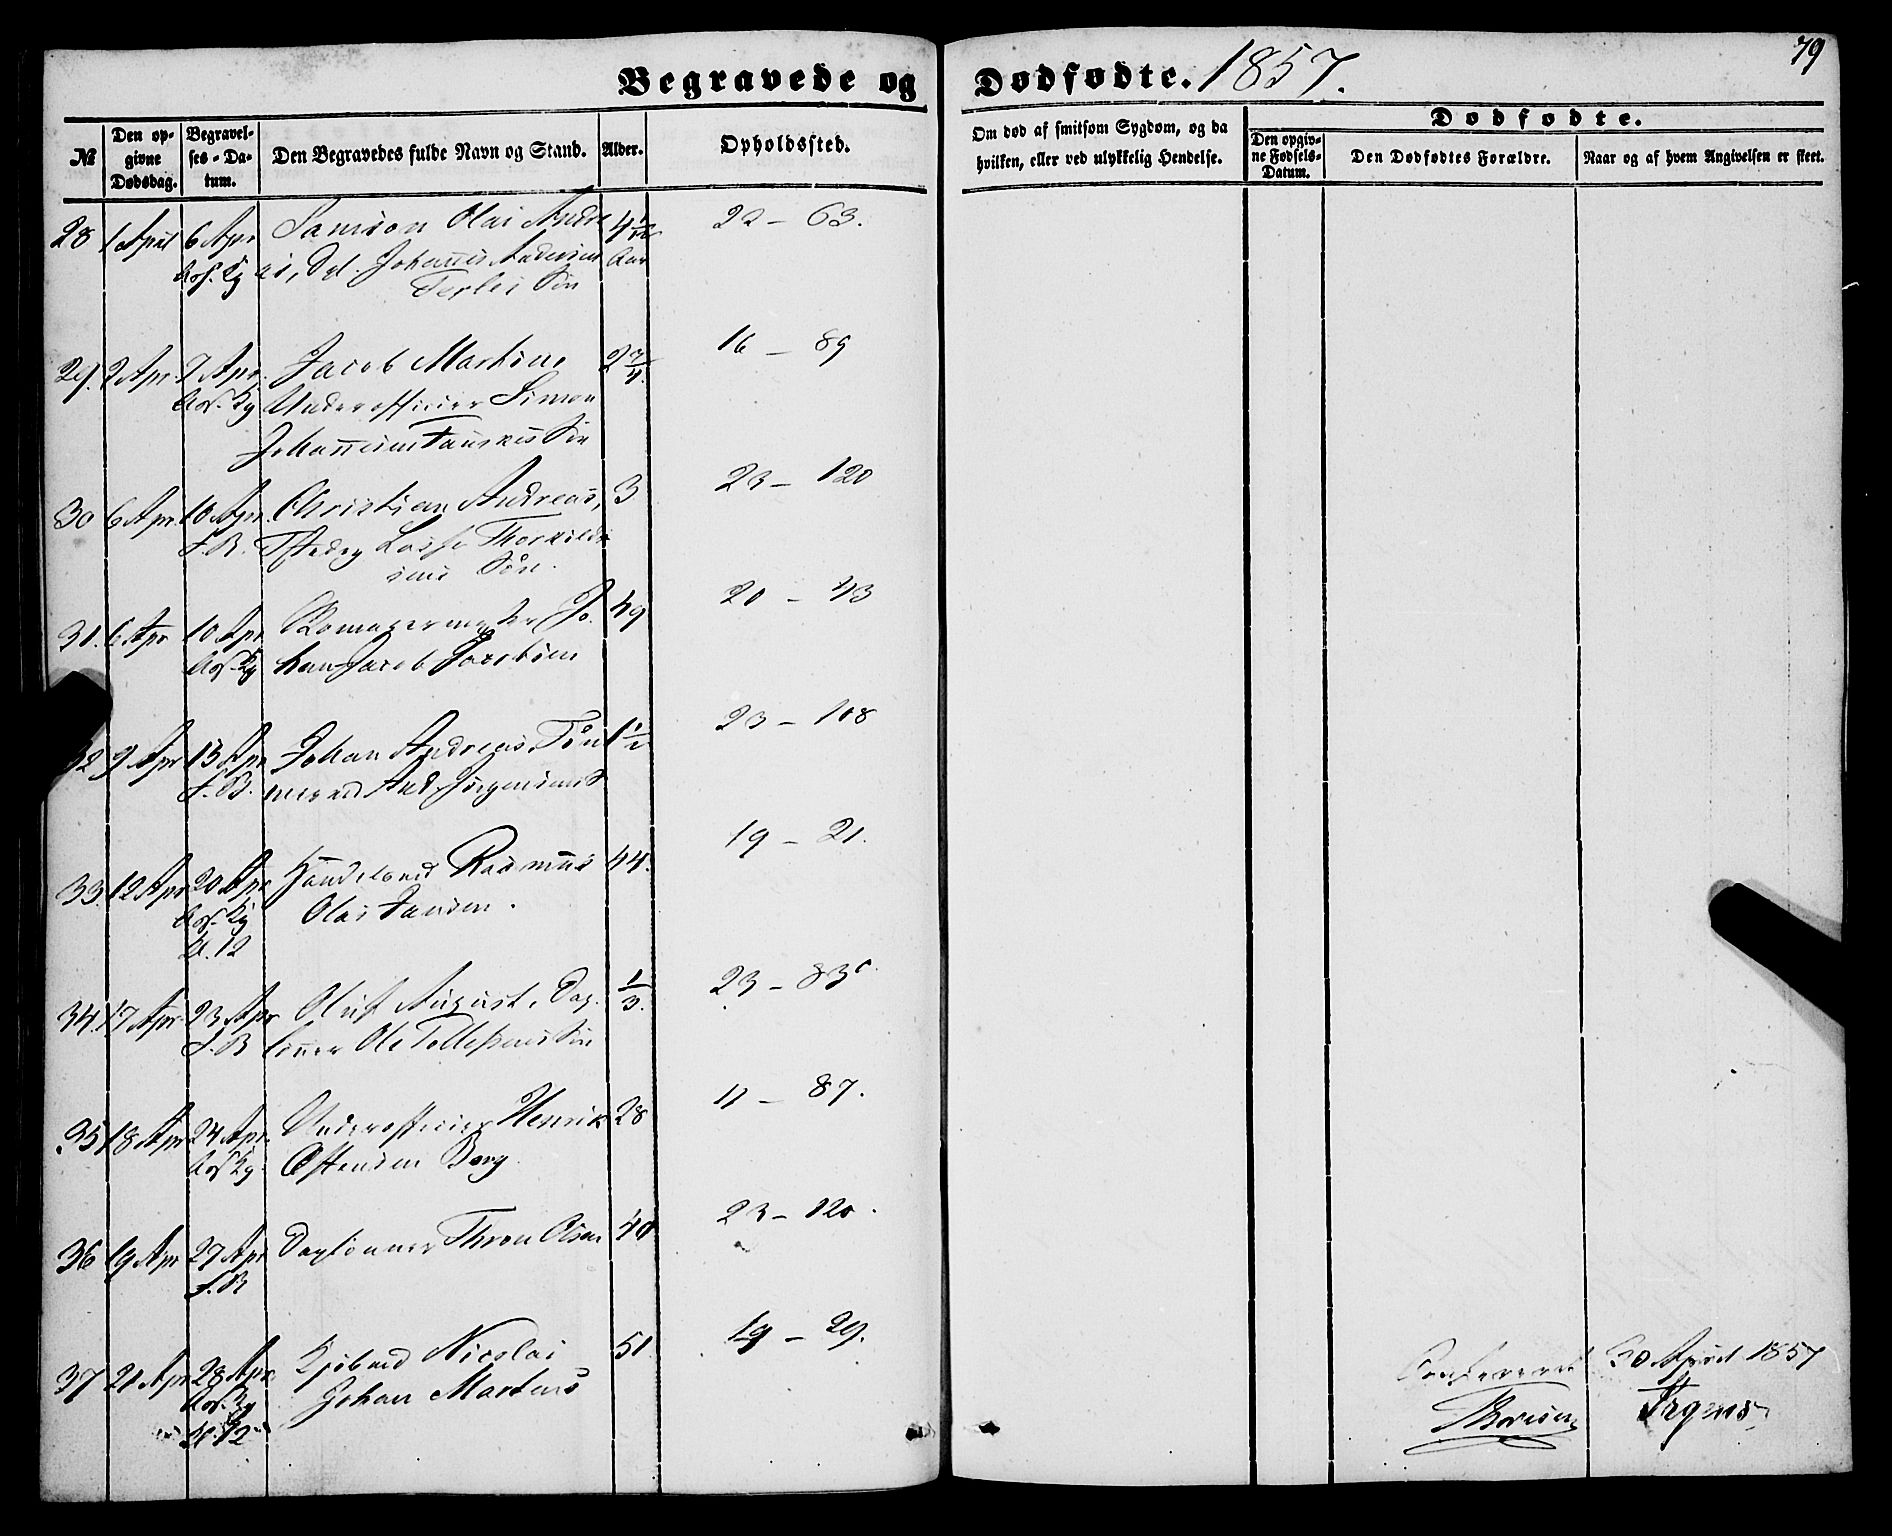 79
Begravede og Dødfødte. 1857.
№
Den opgivne Dødsdag.
Begravelses-Datum.
Den Begravedes fulde Navn og Stand.
Alder.
Opholdssted.
Om død af smitsom Sygdom, og da hvilken, eller ved ulykkelig Hendelse.
Dødfødte.
Den opgivne Fødsels-Datum.
Den Dødfødtes Forældre.
Naar og af hvem Angivelsen er skeet.
28 1 April 6 Apr Samson Olai Andre 4 1/12 22 – 63.
as, Johannes Andersen Aar
Søn
29. 2 Apr. 7 Apr. Jacob Martin, 2 3/4. 16 – 89
Underofficier Simon
Johannesen Søn
30 6 Apr. 10 Apr. Christian Andreas, 3 23 – 120
F.B. Lasse Thorkild
sens Søn.
31. 6 Apr 10 Apr Jo. 49 20 – 43
han Jacob Jacobsen
32 9 Apr 13 Apr Johan Andreas, Tøm 1 1/2 23 – 108
F.B. mermd And. Jørgensens S
33. 12 Apr 20 Apr Handelsmd Rasmus 44. 19 – 21.
Olai Jansen.
Kl. 12
34. 17 Apr. 23 Apr Oluf August, Dag- 1/3. 23 – 83c.
F.B lønner Ole Tollefsens Søn
35 18 Apr 24 Apr. Underofficier Henrik 28 11 – 87.
Ostensen Berg.
36 19 Apr 27 Apr Daglønner Thron Olsen 40 23 – 120.
F.B
37 21 Apr 28 Apr. Kjøbmd Nicolai 51 19 – 29.
Johan Martens
Kl. 12
Confereret 30 April 1857
Thorsen Irgens